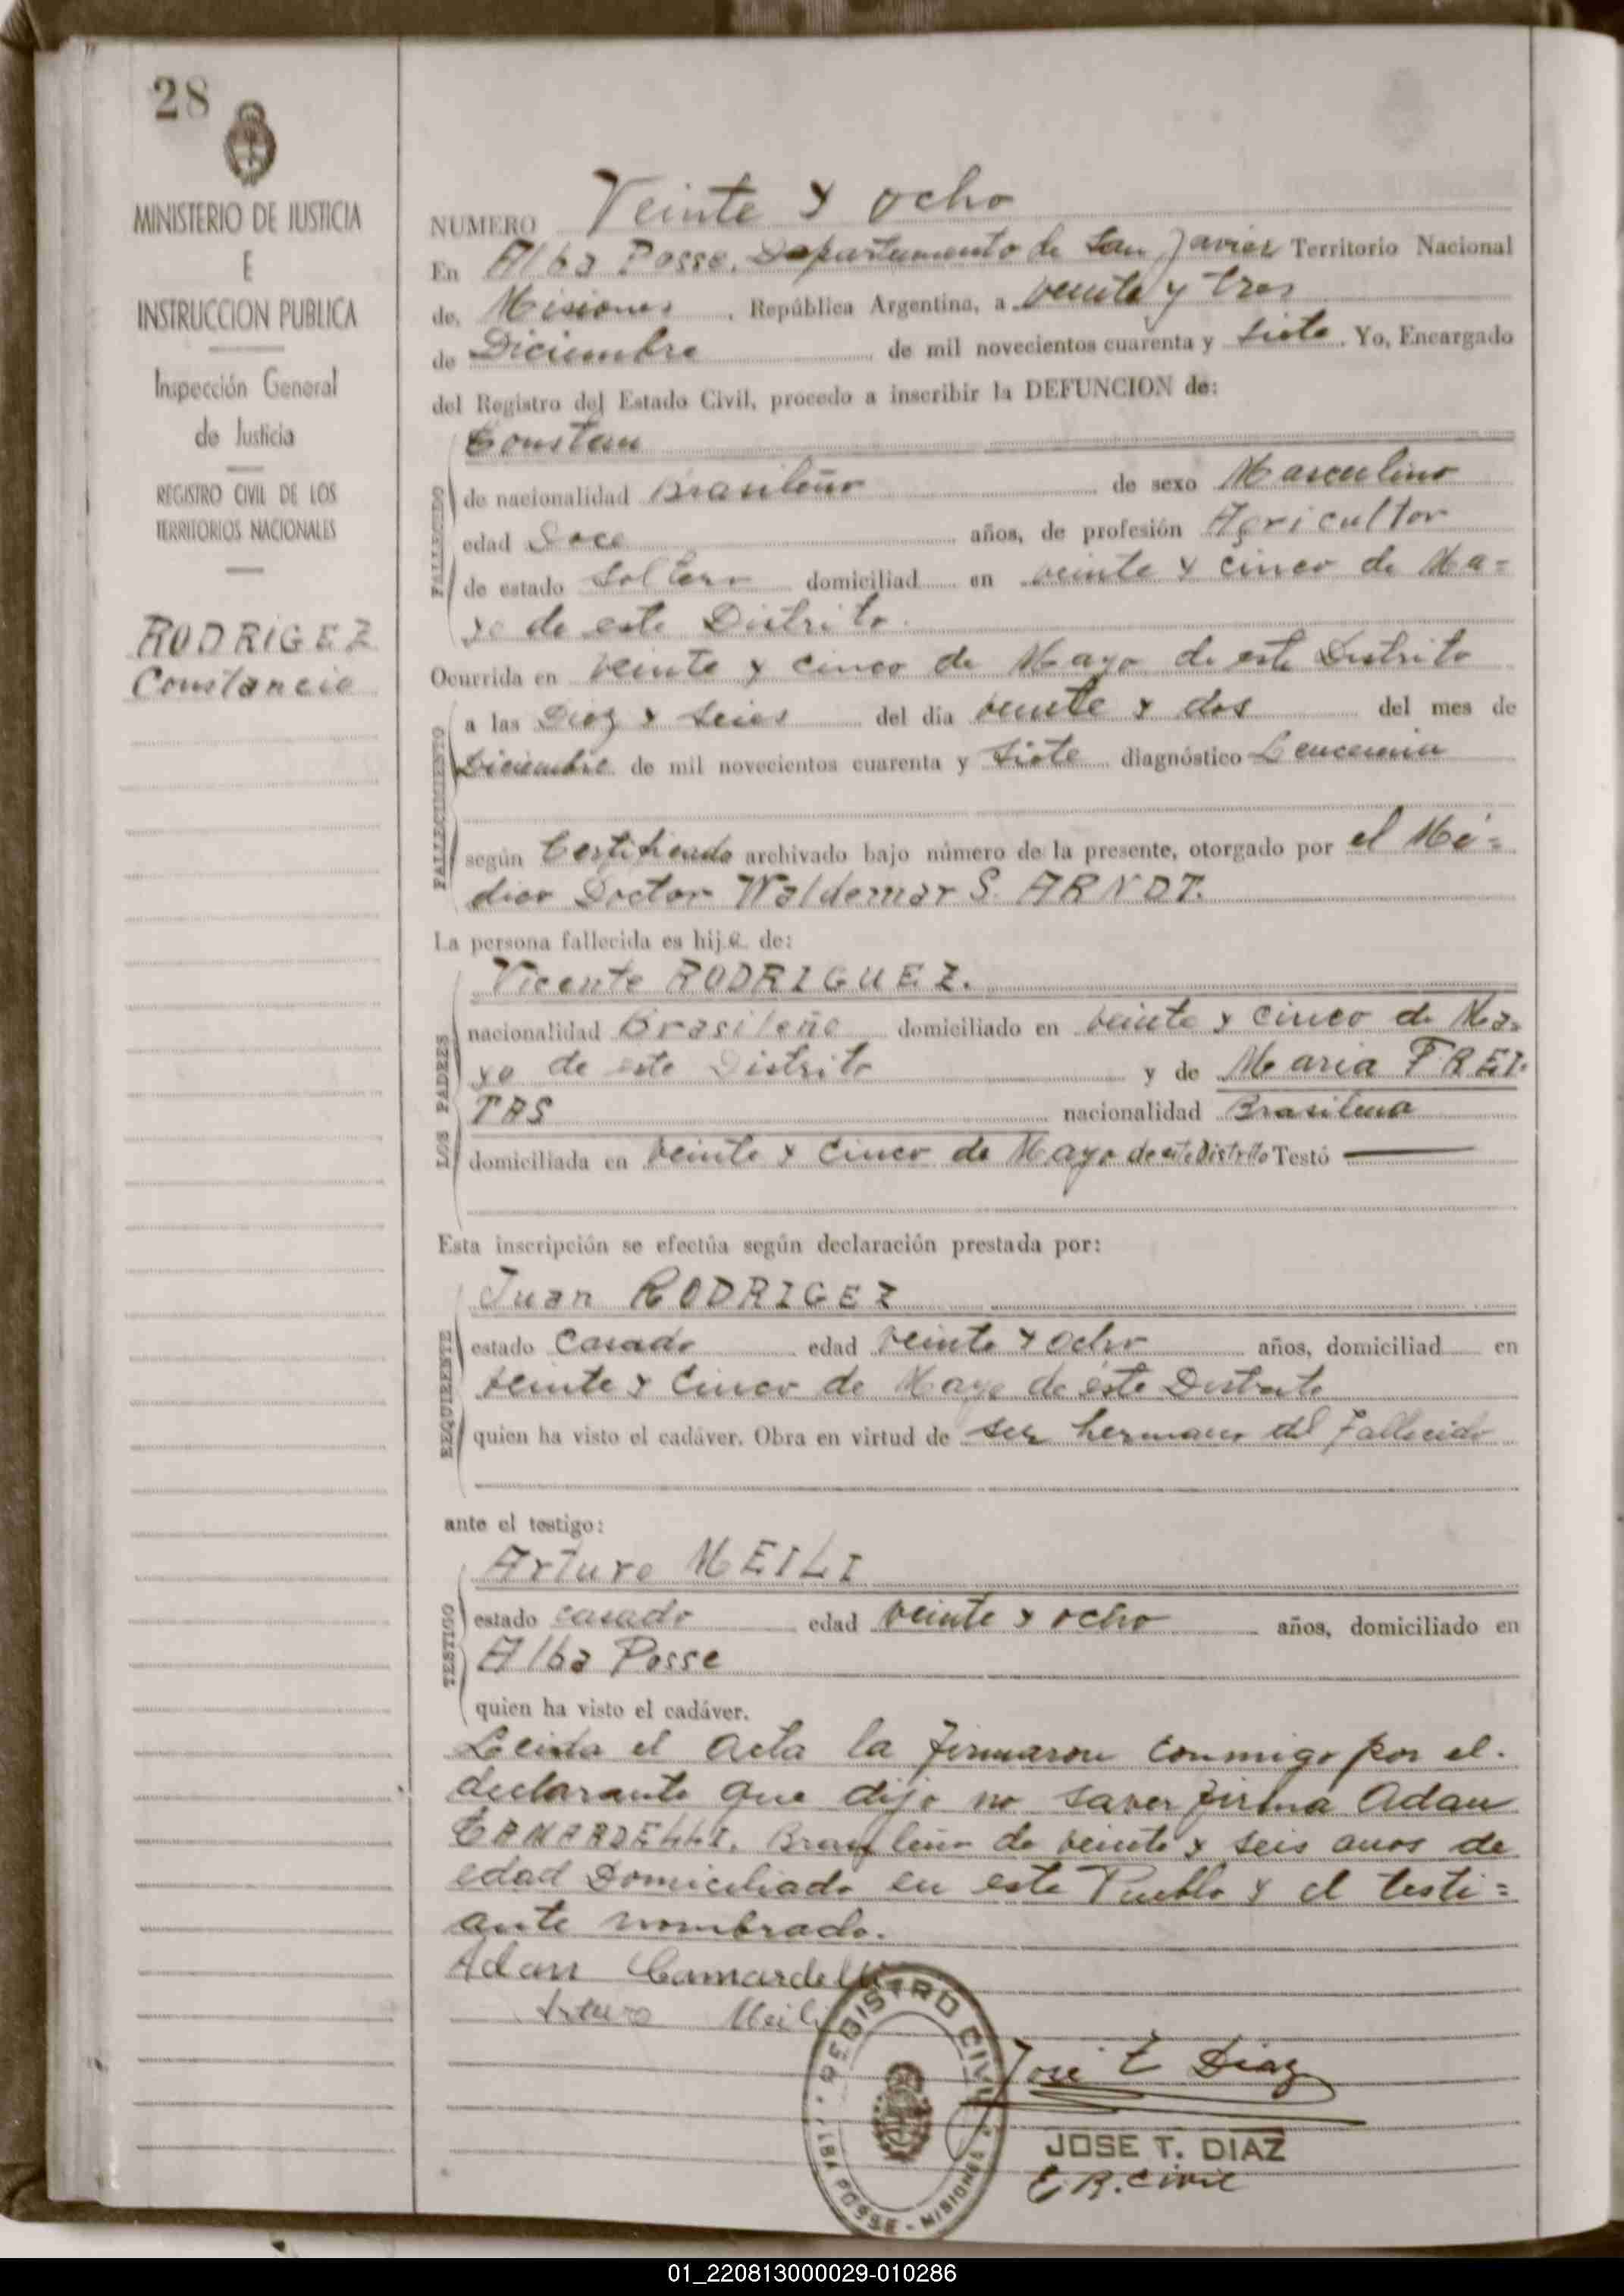 28
MINISTERIO DE JUSTICIA
E
INSTRUCCION PUBLICA
Inspección General
de Justicia
REGISTRO CIVIL DE LOS
TERRITORIOS NACIONALES
RODRIGEZ
Constancio
NUMERO Veinte y ocho
En Alba Posse, Departamento de San Javier Territorio Nacional
de, Misiones, República Argentina, a veinte y tres
de Diciembre de mil novecientos cuarenta y siete. Yo, Encargado
del Registro del Estado Civil, procedo a inscribir la DEFUNCION de:
Constan
FALLECIDO
de nacionalidad Brasileño de sexo Masculino
edad Doce años, de profesión Agricultor
de estado Soltero domiciliad en veinte y cinco de Ma=
yo de este Distrito.
Ocurrida en veinte y cinco de Mayo de este Distrito
FALLECIMIENTO
a las Diez y seies del día veinte y dos del mes de
Diciembre de mil novecientos cuarenta y siete diagnóstico Leucemia
según Certificado archivado bajo número de la presente, otorgado por el Mé=
dico Doctor Waldemar S. ARNDT.
La persona fallecida es hij.o. de:
Vicente RODRIGUEZ.
LOS PADRES
nacionalidad Brasileño domiciliado en veinte y cinco de Ma=
yo de este Distrito y de Maria FREI=
TAS nacionalidad Brasilena
domiciliada en veinte y cinco de Mayo de este Distrito Testó
Esta inscripción se efectúa según declaración prestada por:
Juan RODRIGEZ
REQUIRENTE
estado Casado edad veinte y ocho años, domiciliad en
veinte y cinco de Mayo de éste Distrito
quien ha visto el cadáver. Obra en virtud de ser hermano del fallecido
ante el testigo:
Arturo MEILI
TESTIGO
estado casado edad veinte y ocho años, domiciliado en
Alba Posse
quien ha visto el cadáver.
Leida el acta la firmaron conmigo por el.
declarante que dijo no saver firma Adan
CAMARDELLI. Brasileño de veinte y seis anos de
edad Domiciliado en este Pueblo y el testi=
ante nombrado.
Adan Camardelli
Arturo Meili
REGISTRO CIVIL
ALBA POSSE - MISIONES
José T Diaz
JOSE T. DIAZ
E R. Civil
01_220813000029-010286